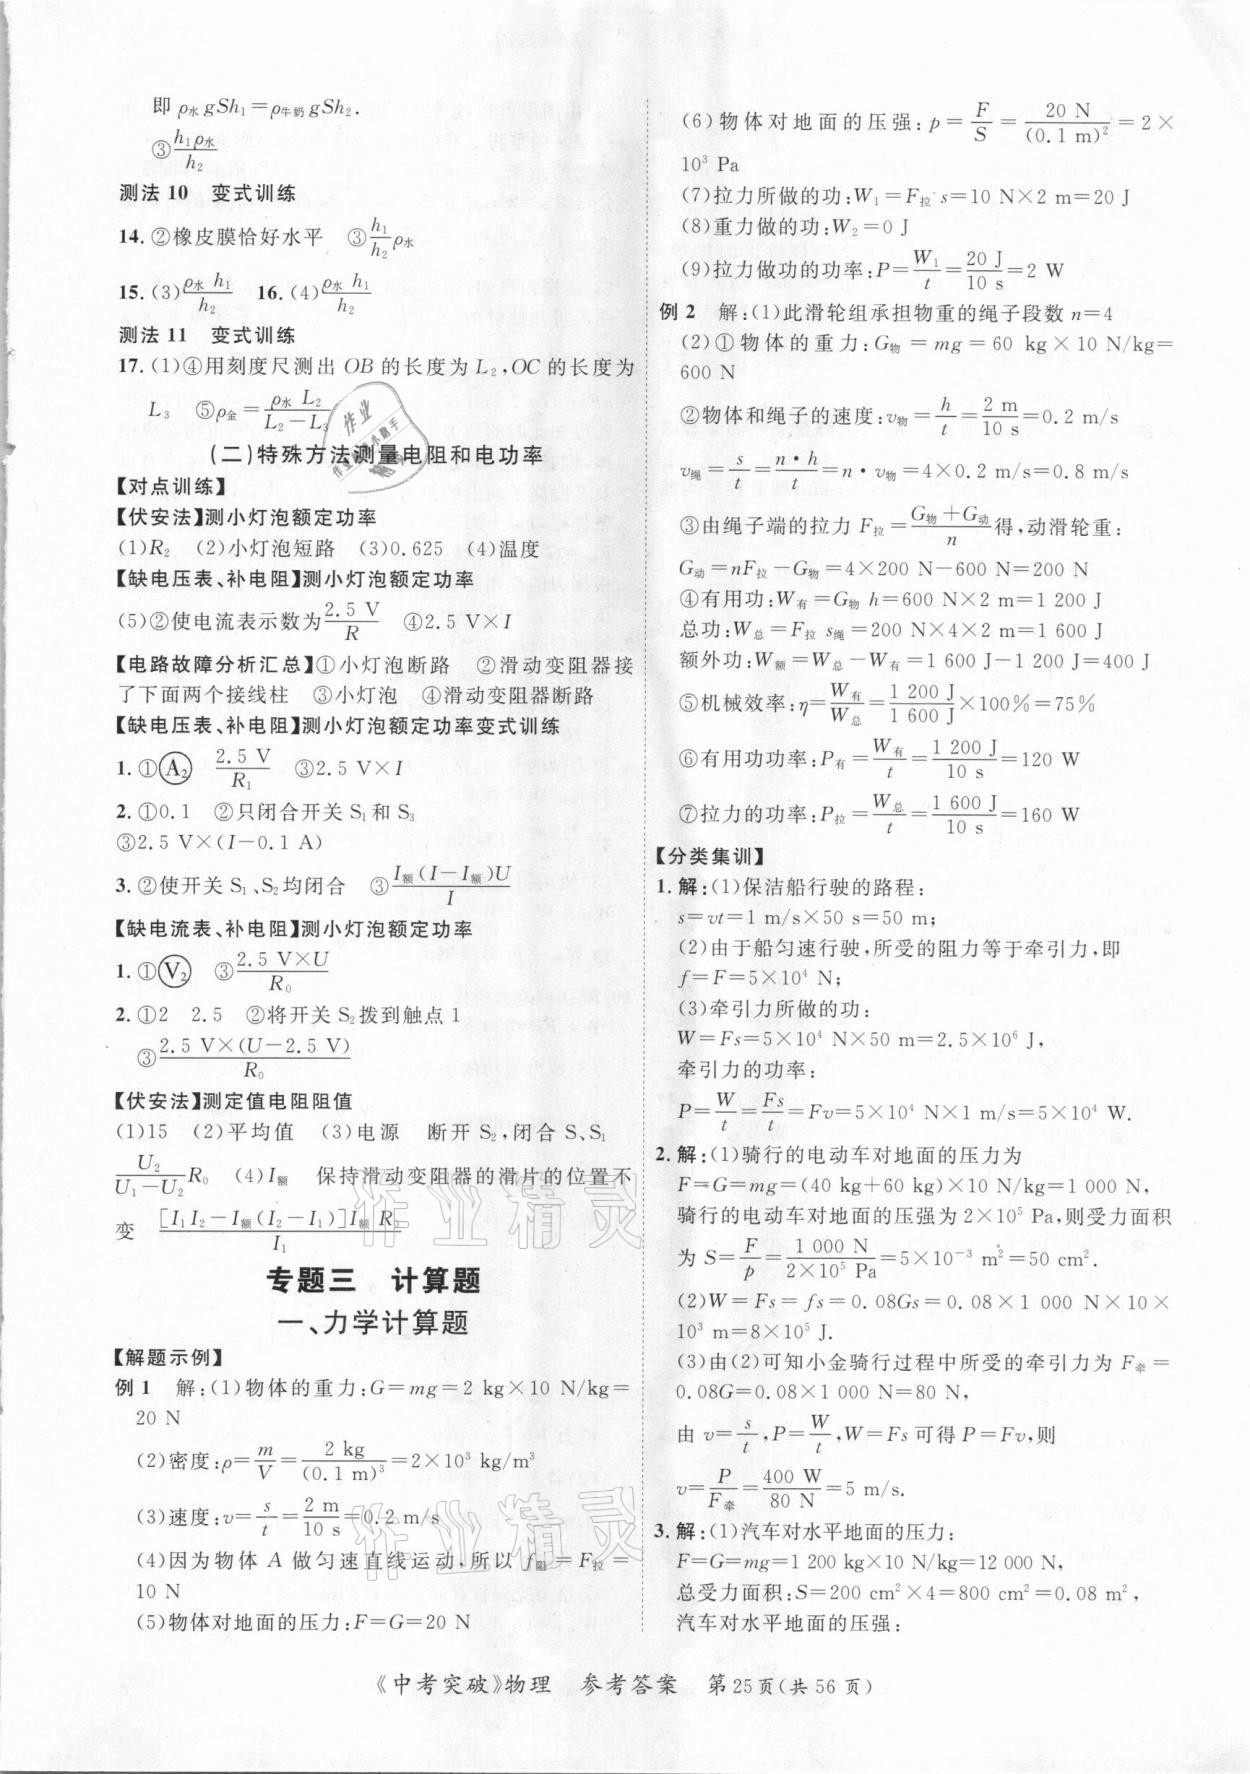 即 ρ水gSh₁=ρ牛奶gSh₂.
③h₁ρ水/h₂
测法 10 变式训练
14. ②橡皮膜恰好水平 ③(h₁/h₂)ρ水
15. (3)ρ水 h₁/h₂ 16. (4)ρ水 h₁/h₂
测法 11 变式训练
17. (1)④用刻度尺测出 OB 的长度为 L₂,OC 的长度为
L₃ ⑤ρ金=ρ水 L₂/(L₂−L₃)
(二)特殊方法测量电阻和电功率
【对点训练】
【伏安法】测小灯泡额定功率
(1)R₂ (2)小灯泡短路 (3)0.625 (4)温度
【缺电压表、补电阻】测小灯泡额定功率
(5)②使电流表示数为2.5 V/R ④2.5 V×I
【电路故障分析汇总】①小灯泡断路 ②滑动变阻器接
了下面两个接线柱 ③小灯泡 ④滑动变阻器断路
【缺电压表、补电阻】测小灯泡额定功率变式训练
1. ①(A₂) 2.5 V/R₁ ③2.5 V×I
2. ①0.1 ②只闭合开关 S₁和 S₃
③2.5 V×(I−0.1 A)
3. ②使开关 S₁、S₂均闭合 ③I额(I−I额)U/I
【缺电流表、补电阻】测小灯泡额定功率
1. ①(V₂) ③2.5 V×U/R₀
2. ①2 2.5 ②将开关 S₂拨到触点 1
③2.5 V×(U−2.5 V)/R₀
【伏安法】测定值电阻阻值
(1)15 (2)平均值 (3)电源 断开 S₂,闭合 S、S₁
U₂/(U₁−U₂)R₀ (4)I额 保持滑动变阻器的滑片的位置不
变 [I₁I₂−I额(I₂−I₁)]I额 R₀/I₁
专题三 计算题
一、力学计算题
【解题示例】
例 1 解:(1)物体的重力:G=mg=2 kg×10 N/kg=
20 N
(2)密度:ρ=m/V=2 kg/(0.1 m)³=2×10³ kg/m³
(3)速度:v=s/t=2 m/10 s=0.2 m/s
(4)因为物体 A 做匀速直线运动,所以 f阻=F拉=
10 N
(5)物体对地面的压力:F=G=20 N
(6)物体对地面的压强:p=F/S=20 N/(0.1 m)²=2×
10³ Pa
(7)拉力所做的功:W₁=F拉·s=10 N×2 m=20 J
(8)重力做的功:W₂=0 J
(9)拉力做功的功率:P=W₁/t=20 J/10 s=2 W
例 2 解:(1)此滑轮组承担物重的绳子段数 n=4
(2)①物体的重力:G物=mg=60 kg×10 N/kg=
600 N
②物体和绳子的速度:v物=h/t=2 m/10 s=0.2 m/s
v绳=s/t=n·h/t=n·v物=4×0.2 m/s=0.8 m/s
③由绳子端的拉力 F拉=(G物+G动)/n得,动滑轮重:
G动=nF拉−G物=4×200 N−600 N=200 N
④有用功:W有=G物 h=600 N×2 m=1 200 J
总功:W总=F拉 s绳=200 N×4×2 m=1 600 J
额外功:W额=W总−W有=1 600 J−1 200 J=400 J
⑤机械效率:η=W有/W总=1 200 J/1 600 J×100%=75%
⑥有用功功率:P有=W有/t=1 200 J/10 s=120 W
⑦拉力的功率:P拉=W总/t=1 600 J/10 s=160 W
【分类集训】
1. 解:(1)保洁船行驶的路程:
s=vt=1 m/s×50 s=50 m;
(2)由于船匀速行驶,所受的阻力等于牵引力,即
f=F=5×10⁴ N;
(3)牵引力所做的功:
W=Fs=5×10⁴ N×50 m=2.5×10⁶ J,
牵引力的功率:
P=W/t=Fs/t=Fv=5×10⁴ N×1 m/s=5×10⁴ W.
2. 解:(1)骑行的电动车对地面的压力为
F=G=mg=(40 kg+60 kg)×10 N/kg=1 000 N,
骑行的电动车对地面的压强为 2×10⁵ Pa,则受力面积
为 S=F/p=1 000 N/2×10⁵ Pa=5×10⁻³ m²=50 cm².
(2)W=Fs=fs=0.08Gs=0.08×1 000 N×10×
10³ m=8×10⁵ J.
(3)由(2)可知小金骑行过程中所受的牵引力为 F牵=
0.08G=0.08×1 000 N=80 N,
由 v=s/t,P=W/t,W=Fs 可得 P=Fv,则
v=P/F牵=400 W/80 N=5 m/s.
3. 解:(1)汽车对水平地面的压力:
F=G=mg=1 200 kg×10 N/kg=12 000 N,
总受力面积:S=200 cm²×4=800 cm²=0.08 m²,
汽车对水平地面的压强:
《中考突破》物理 参考答案 第25页(共 56 页)
作业精灵
作业精灵